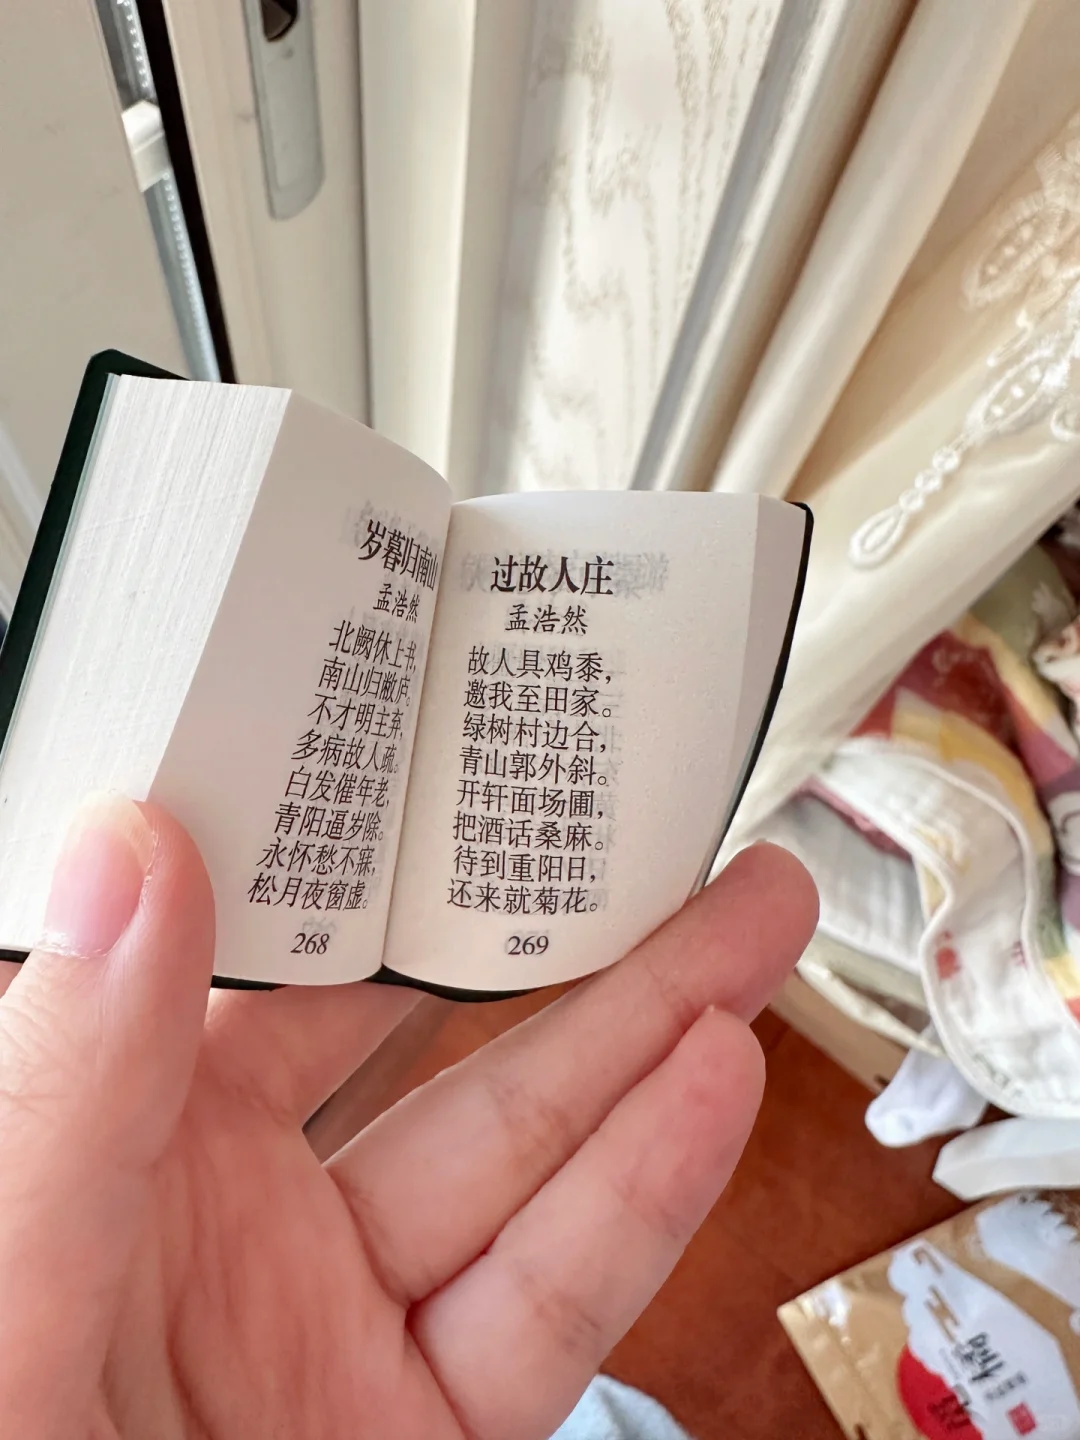 岁暮归南山
孟浩然
北阙休上书，
南山归敝庐。
不才明主弃，
多病故人疏。
白发催年老，
青阳逼岁除。
永怀愁不寐，
松月夜窗虚。
268
过故人庄
孟浩然
故人具鸡黍，
邀我至田家。
绿树村边合，
青山郭外斜。
开轩面场圃，
把酒话桑麻。
待到重阳日，
还来就菊花。
269